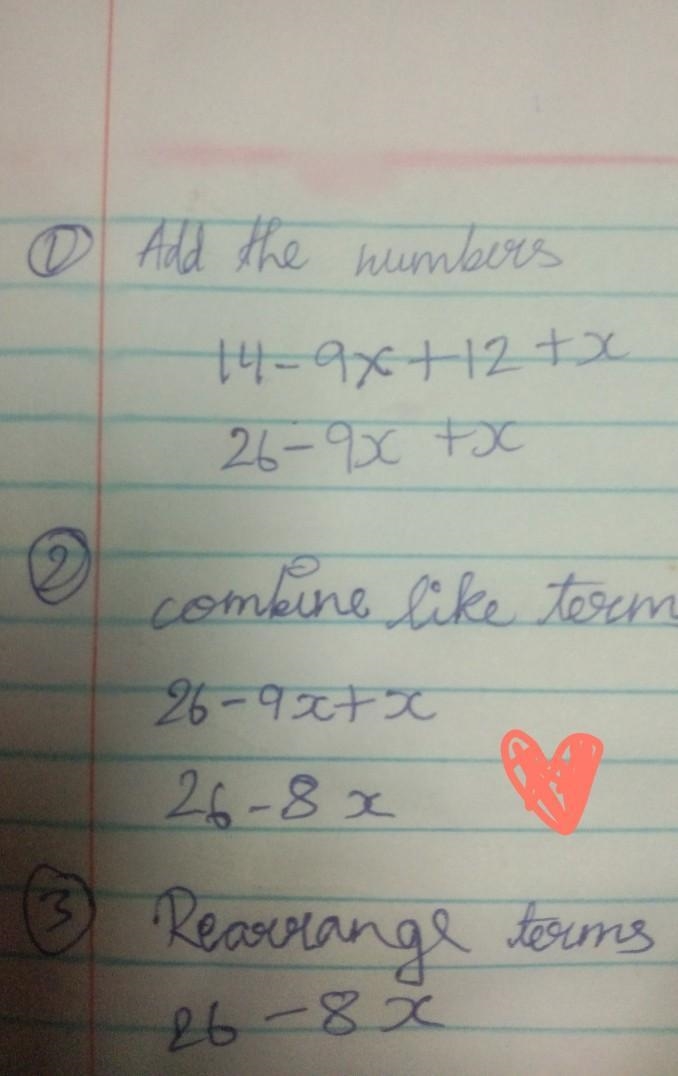 ① Add the numbers
14-9x+12+x
26-9x+x
② combine like term
26-9x+x
26-8x
③ Rearrange terms
26-8x